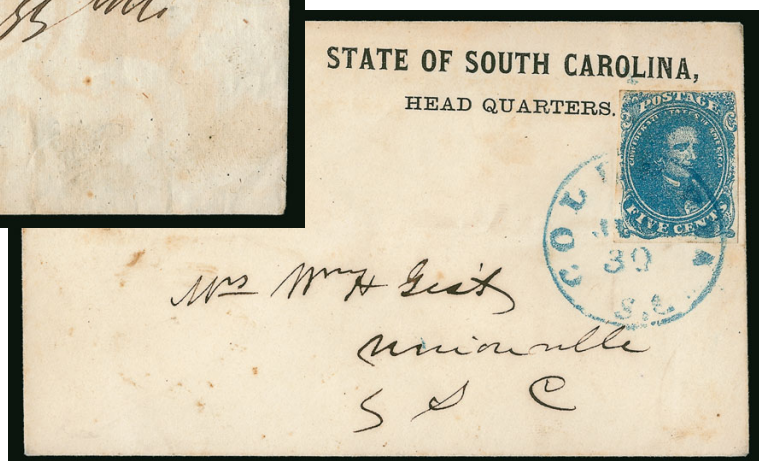 STATE OF SOUTH CAROLINA,
HEAD QUARTERS.
POSTAGE
CONFEDERATE STATES OF AMERICA
FIVE CENTS
30
S.C.
Mrs Wm H Gist
Unionville
S C